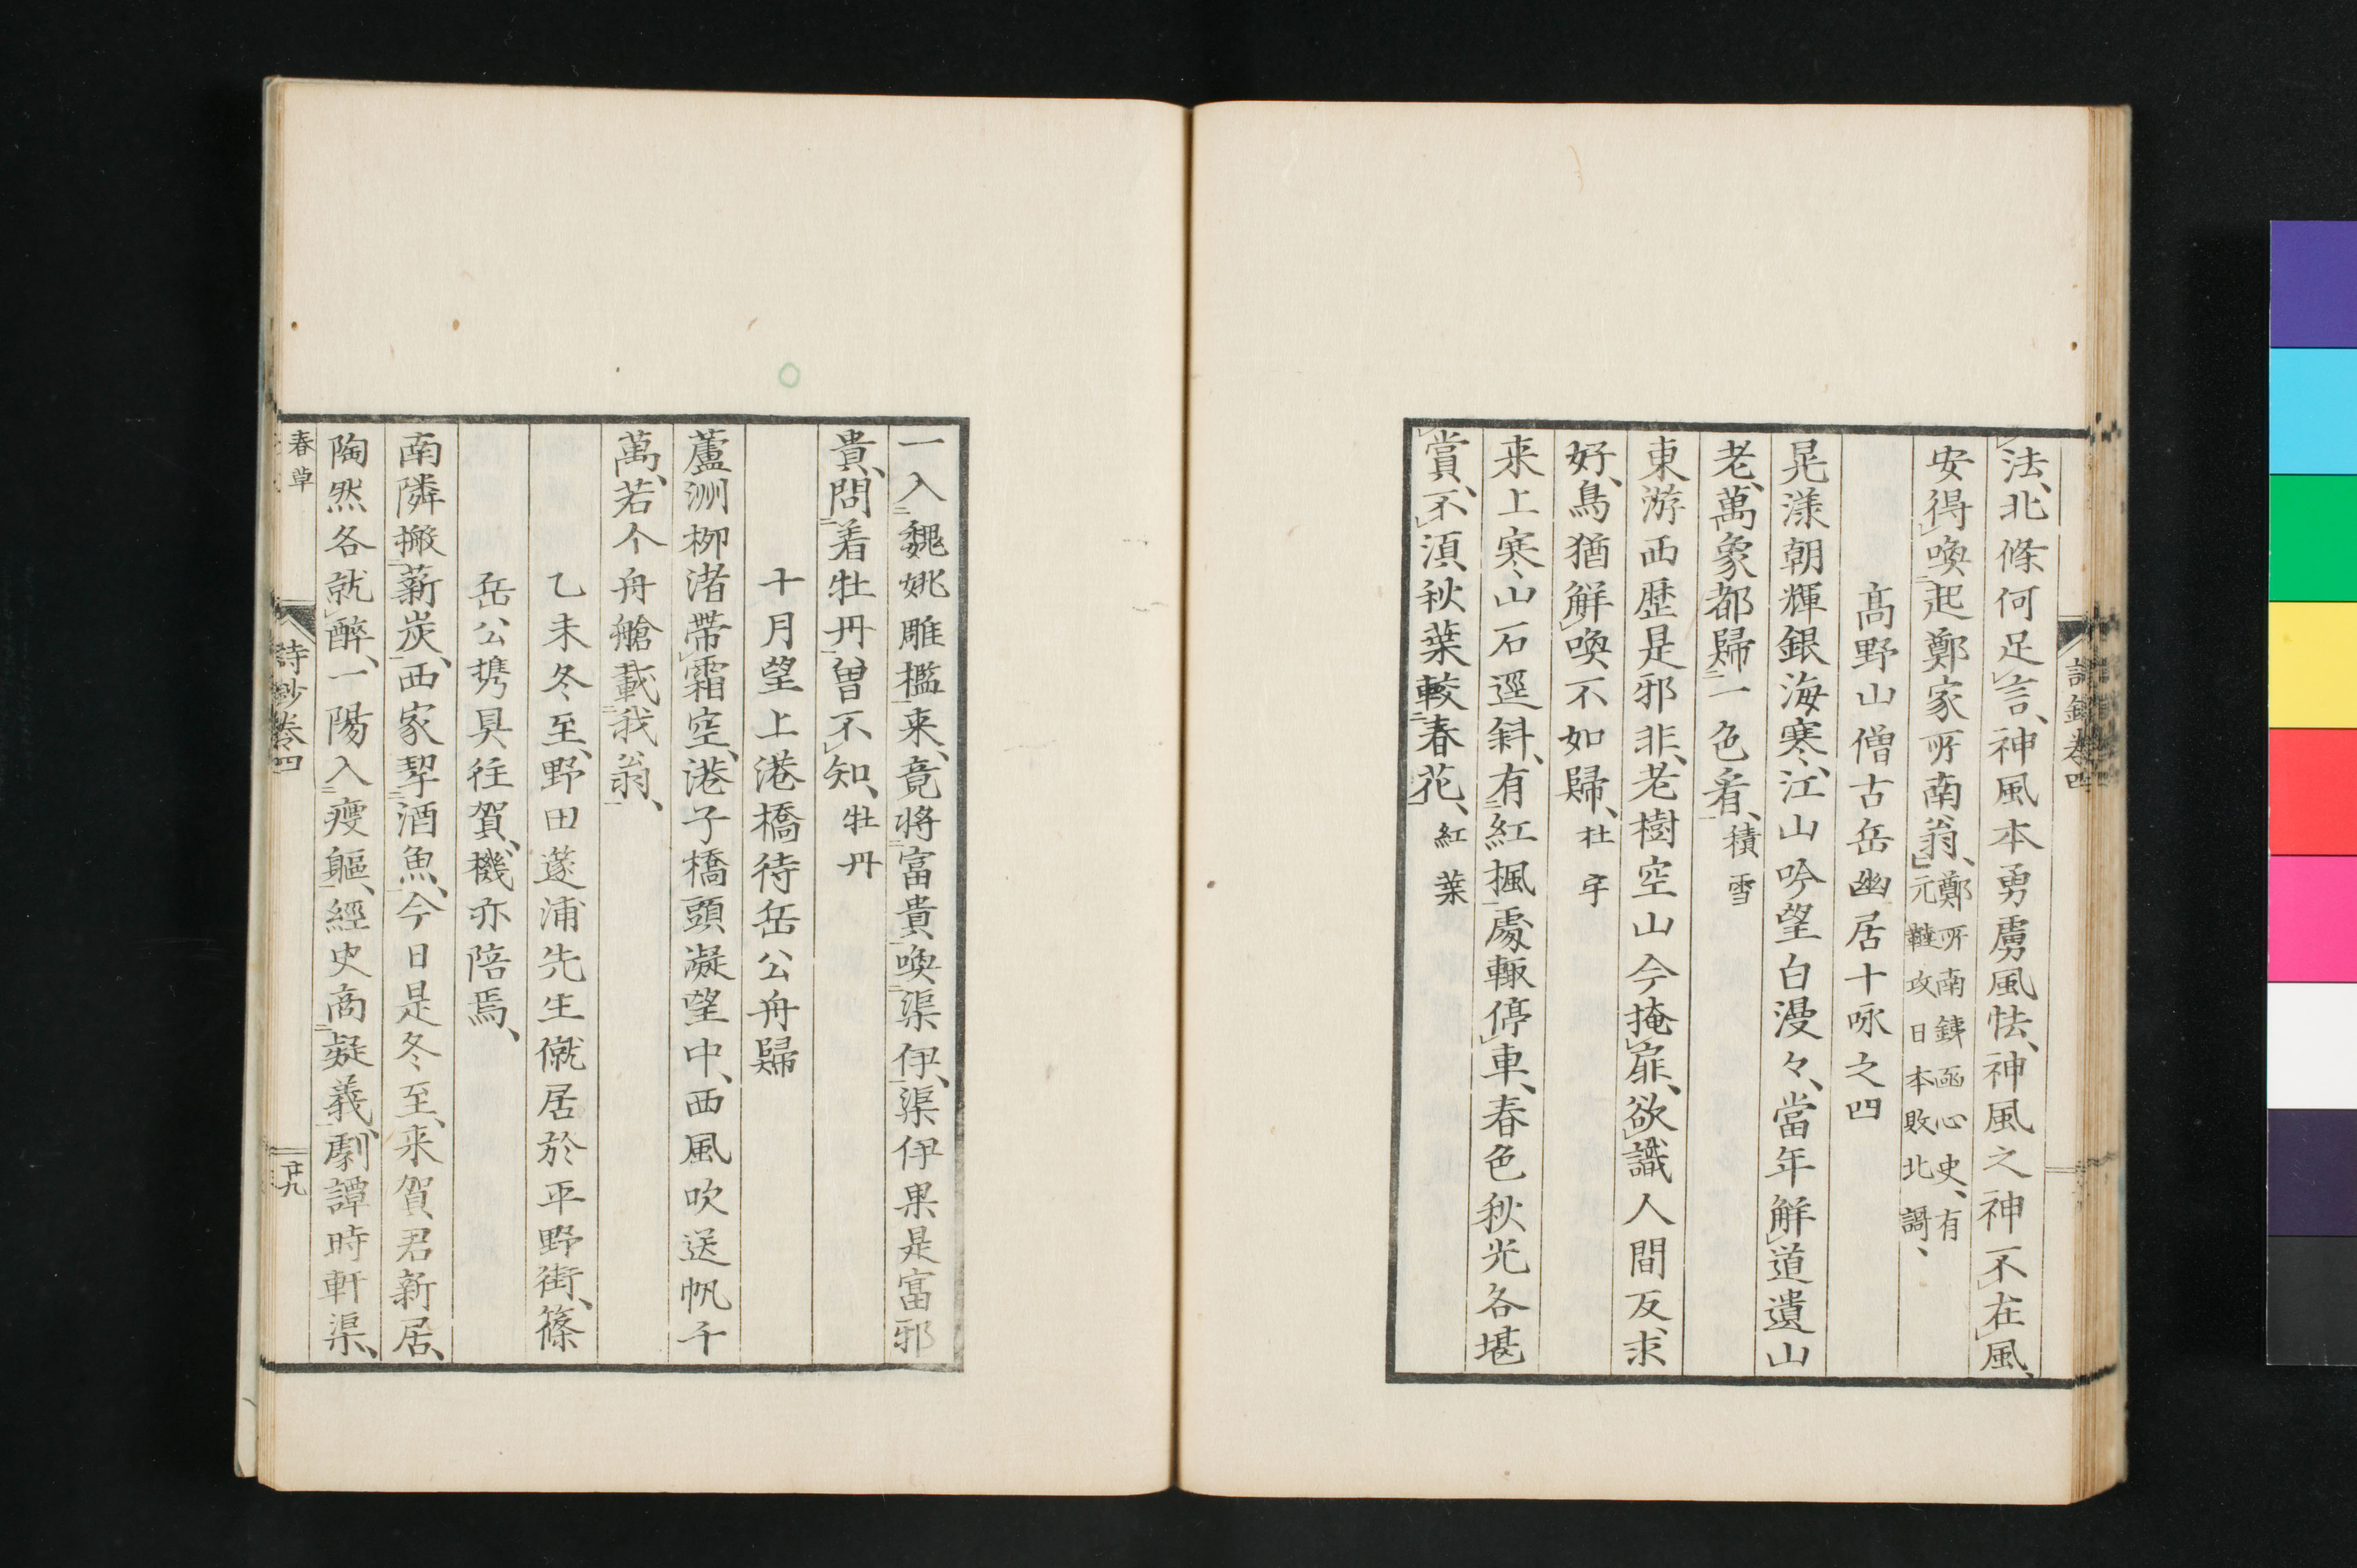 法、北條何足言、神風本勇虜風怯、神風之神不在風、
安得喚起鄭家所南翁、鄭所南銕函心史、有
元韃攻日本敗北謌、
高野山僧古岳幽居十咏之四
晃漾朝輝銀海寒、江山吟望白漫々、當年解道遺山
老、萬象都歸一色看、積雪
東游西歷是邪非、老樹空山今掩扉、欲識人間反求
好、鳥猶解喚不如歸、杜宇
来上寒山石逕斜、有紅楓處輙停車、春色秋光各堪
賞、不須秋葉較春花、紅葉
詩鈔卷四
一入魏姚雕檻来、竟將富貴喚渠伊、渠伊果是富邪
貴、問着牡丹曽不知、牡丹
十月望上港橋待岳公舟歸
蘆洲柳渚帶霜空、港子橋頭凝望中、西風吹送帆千
萬、若个舟艙載我翁、
乙未冬至、野田蘧浦先生僦居於平野街、篠
岳公携具往賀、機亦陪焉、
南隣搬薪炭、西家挈酒魚、今日是冬至、来賀君新居、
陶然各就醉、一陽入瘦軀、經史商疑義、劇譚時軒渠、
春草
詩鈔卷四
廿九